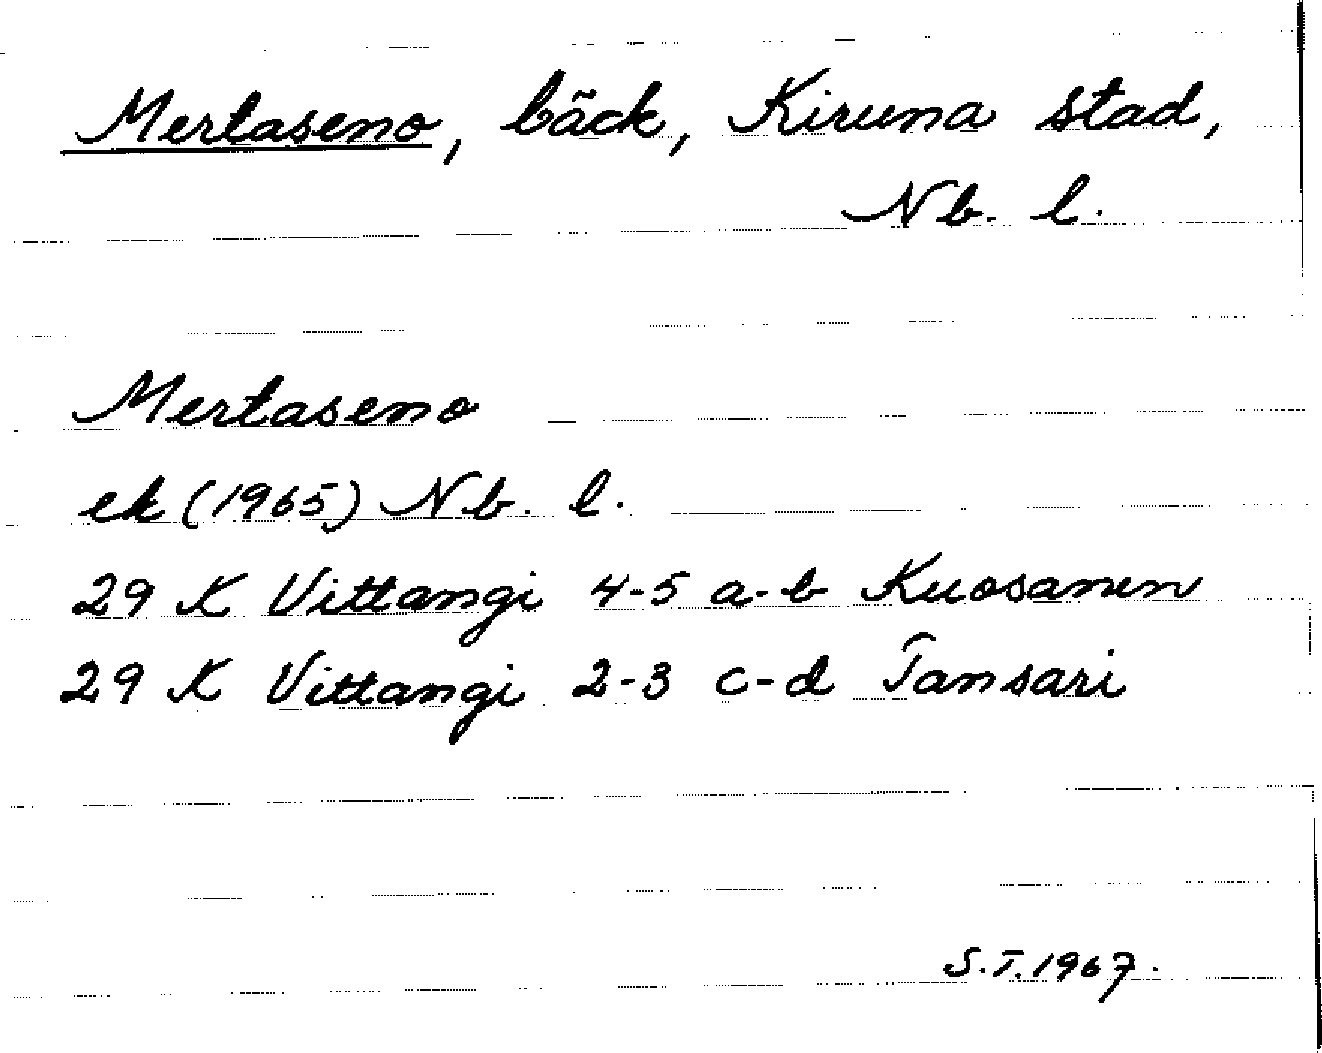 Mertaseno, bäck, Kiruna stad,
Nb. l.
Mertaseno
ek (1965) Nb. l.
29 K Vittangi 4-5 a-b Kuosanen
29 K Vittangi 2-3 c-d Tansari
S.T. 1967.